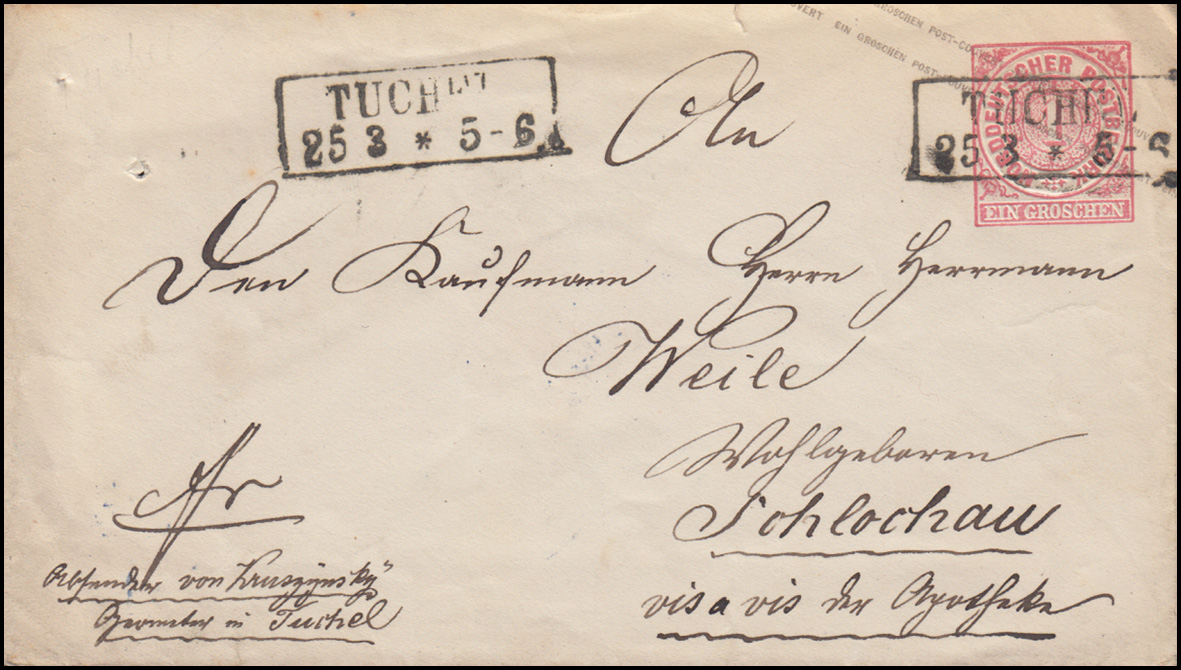 EIN GROSCHEN POST-COUVERT EIN GROSCHEN POST-COUVERT
TUCHEL
25 3 * 5-6 A
TUCHEL
25 3 * 5-6
NORDDEUTSCHER POSTBEZIRK
1
EIN GROSCHEN
An
Den Kaufmann Herrn Herrmann
Weile
Wohlgeboren
Schlochau
vis a vis der Apotheke
Fr
Absender von Kruszÿnskÿ
Geometer in Tuchel